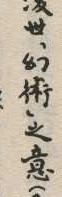 後世「幻術」之意(